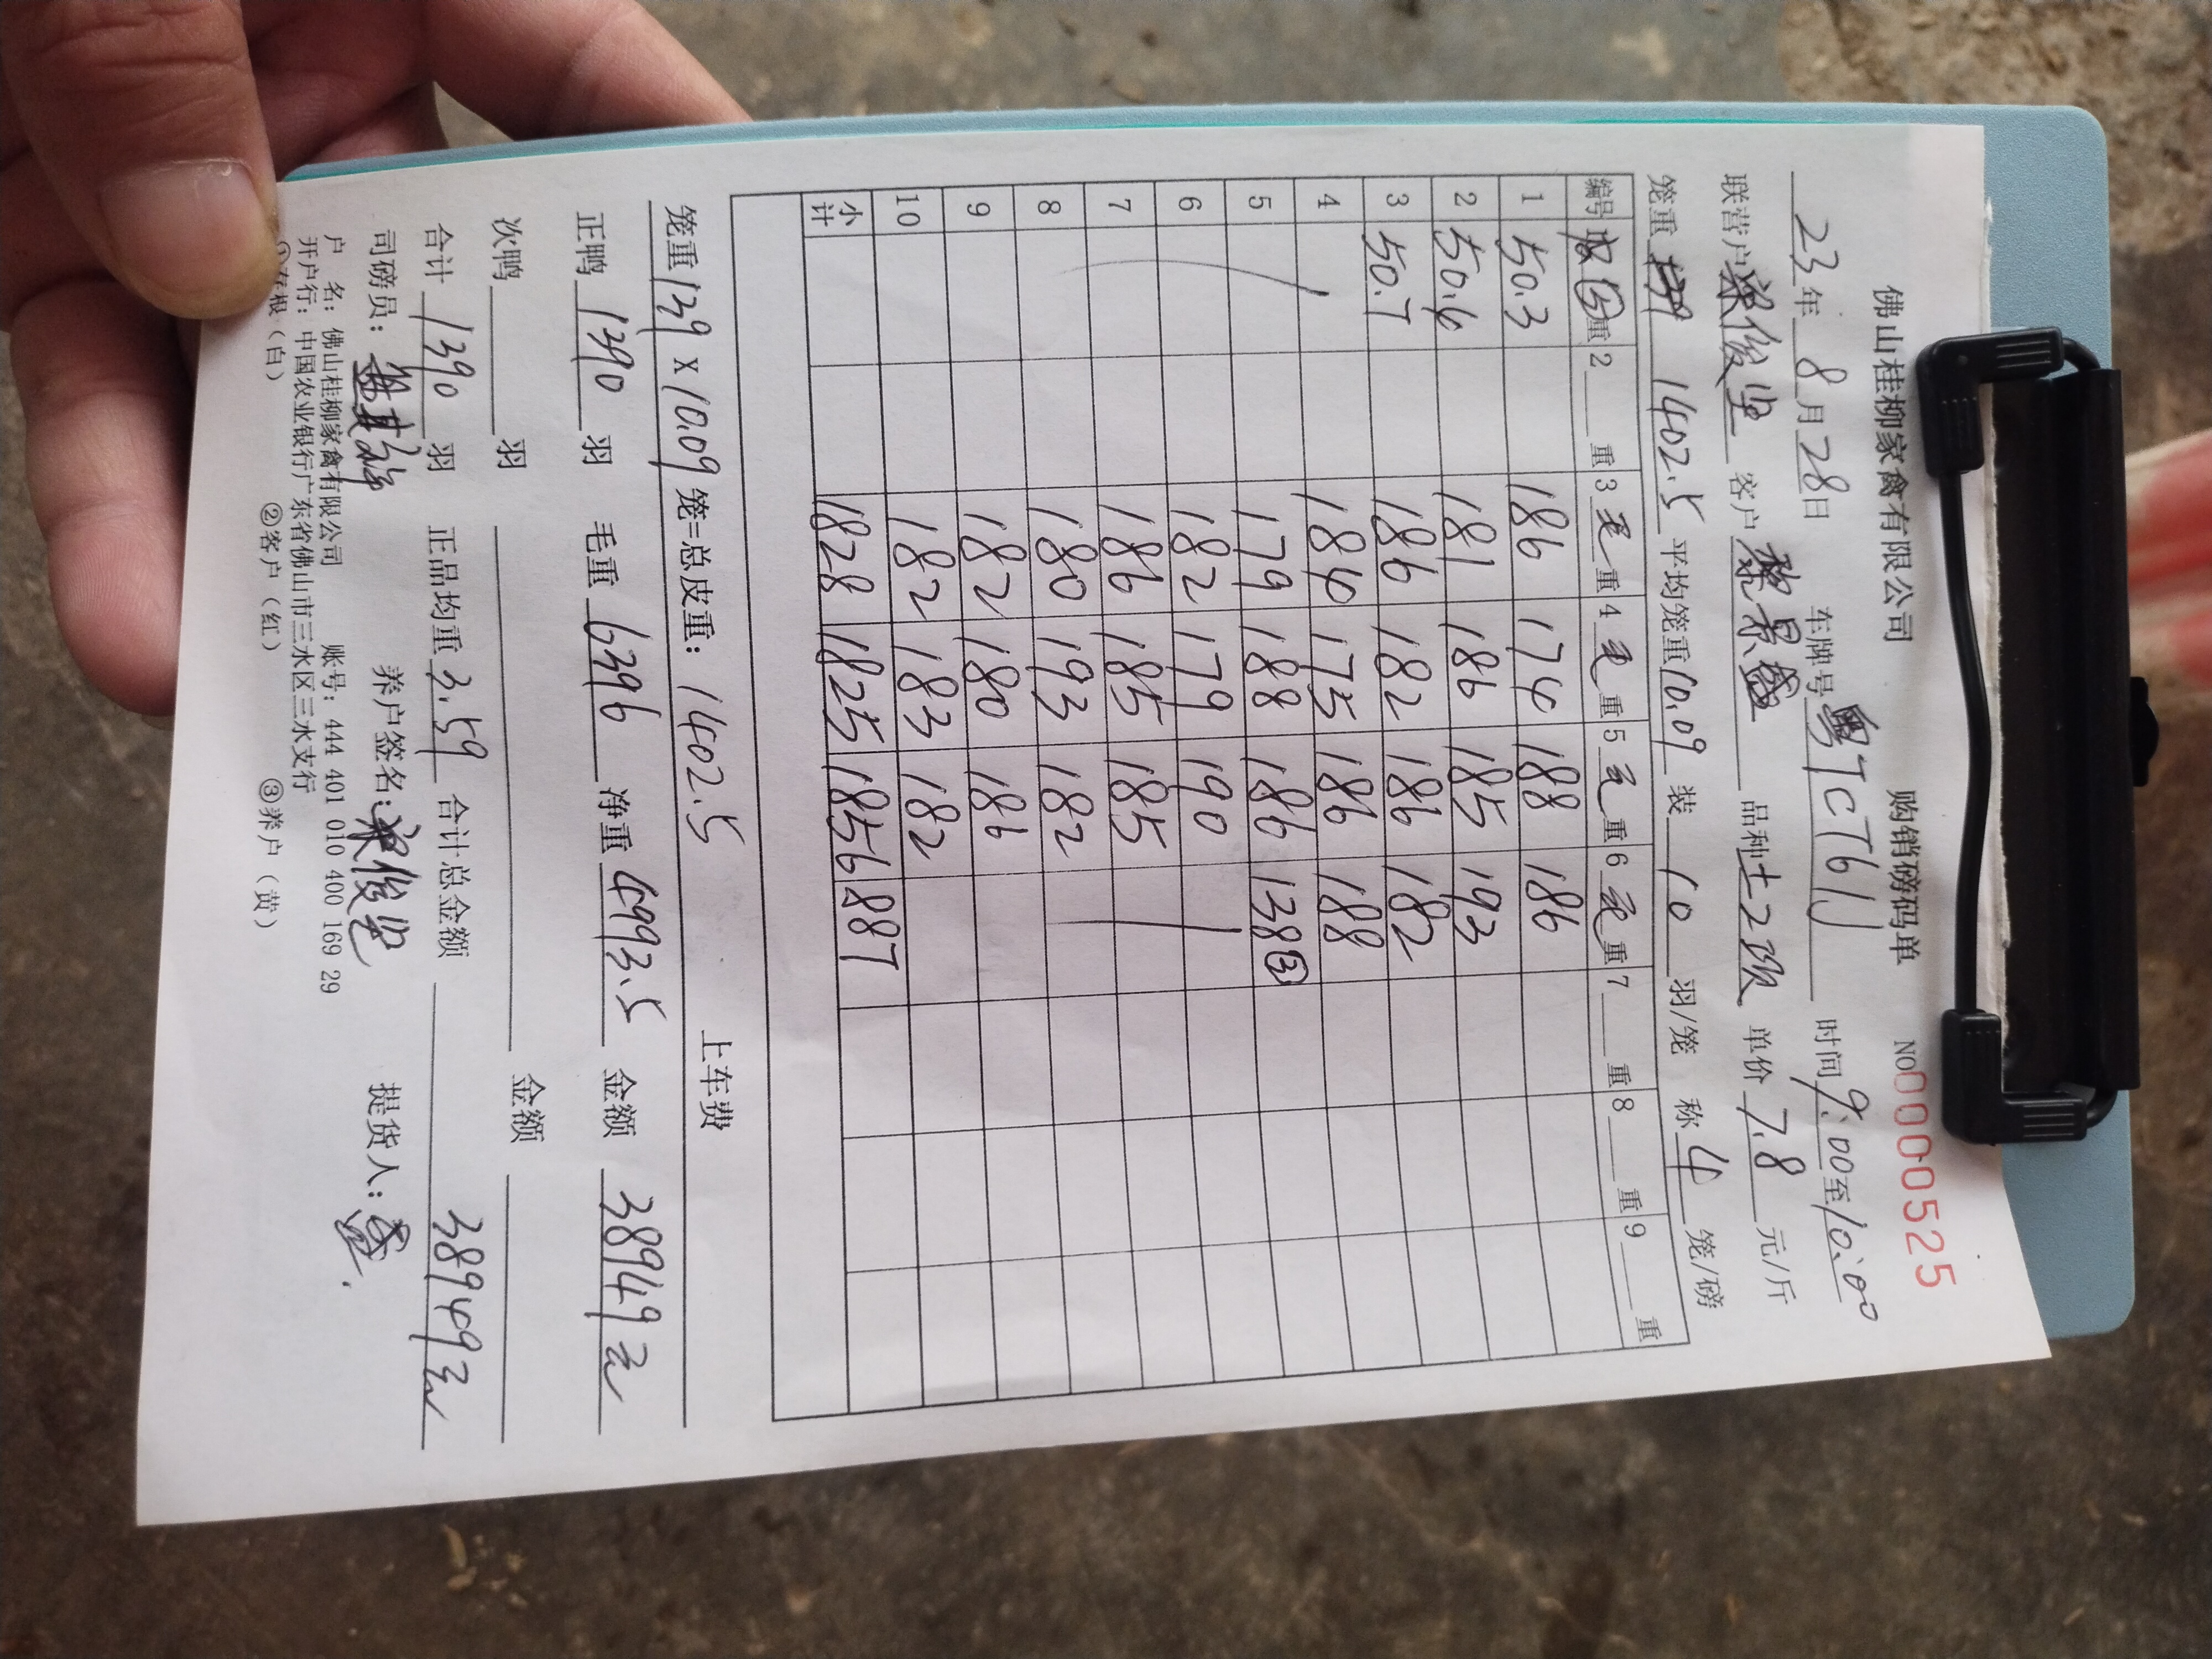 佛山桂柳家禽有限公司 购销磅码单 NO 0000525
23年8月28日 车牌号粤TCT61J 时间9:00至10:00
联营户梁俊坚 客户黎景盛 品种土2级 单价7.8元/斤
笼重 1402.5 平均笼重10.09 装10羽/笼 称4笼/磅
编号 重 2 重 3毛重 4毛重 5毛重 6毛重 7 重 8 重 9 重
1 50.3 186 174 188 186
2 50.6 181 186 185 193
3 50.7 186 182 186 182
4 184 175 186 188
5 179 188 186 138③
6 182 179 190
7 186 185 185
8 180 193 182
9 182 180 186
10 182 183 182
小计 1828 1825 1856 887
笼重139 x 10.09笼=总皮重: 1402.5 上车费
正鸭1390羽 毛重6396 净重4993.5 金额38949元
次鸭 羽 金额
合计1390羽 正品均重3.59 合计总金额 38949元
司磅员: 养户签名:梁俊坚 提货人:盛
户 名: 佛山桂柳家禽有限公司 账号: 444 401 010 400 169 29
开户行: 中国农业银行广东省佛山市三水区三水支行
①存根(白) ②客户(红) ③养户(黄)